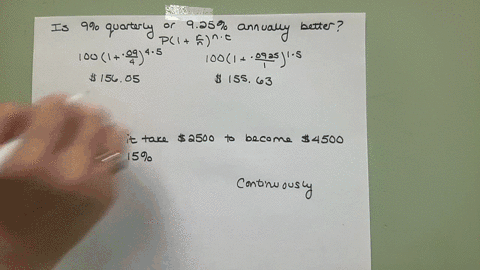 Is 9% quarterly or 9.25% annually better?
P(1 + r/n)^n·t
100(1 + .09/4)^4·5 100(1 + .0925/1)^1·5
$156.05 $155.63
it take $2500 to become $4500
15%
Continuously